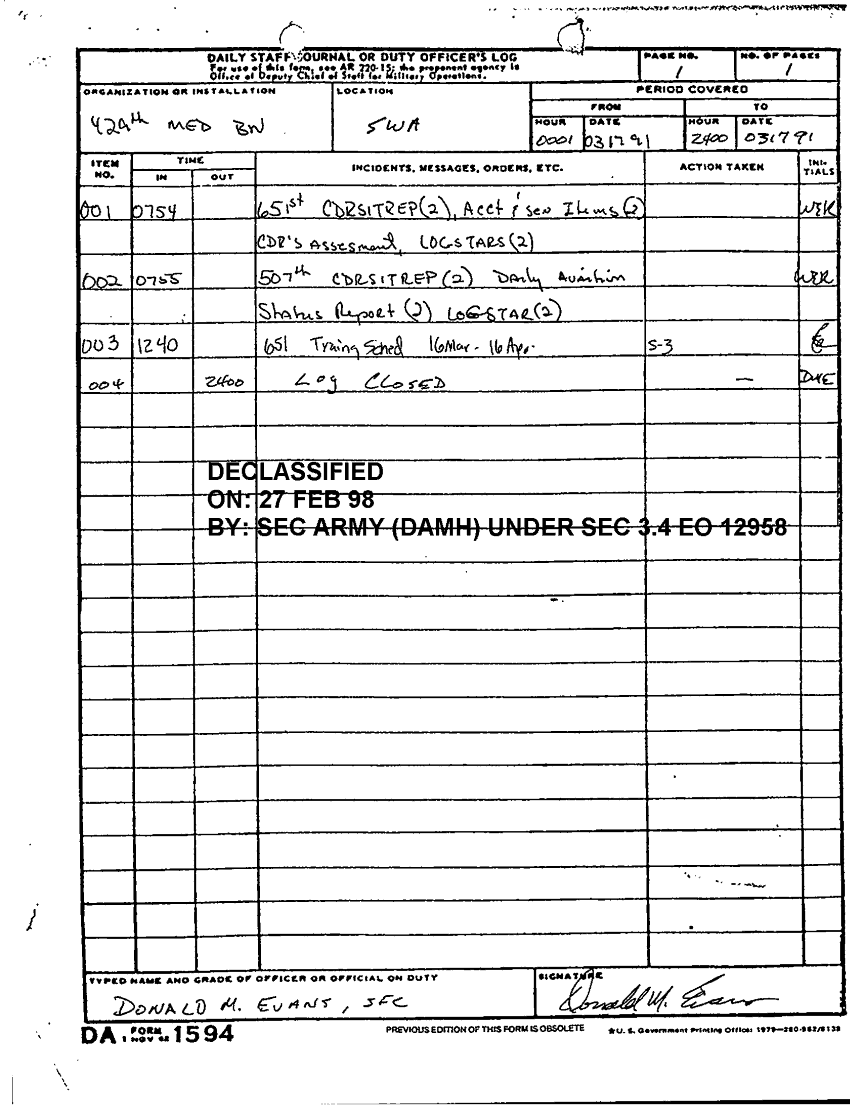 DAILY STAFF JOURNAL OR DUTY OFFICER'S LOG
For use of this form, see AR 220-15; the proponent agency is
Office of Deputy Chief of Staff for Military Operations.
PAGE NO.
1
NO. OF PAGES
1
ORGANIZATION OR INSTALLATION
429th MED BN
LOCATION
SWA
PERIOD COVERED
FROM TO
HOUR DATE HOUR DATE
0001 031791 2400 031791
ITEM NO. TIME INCIDENTS, MESSAGES, ORDERS, ETC. ACTION TAKEN INI-TIALS
IN OUT
001 0754 651st CDRSITREP(2), Acct & sen Items (2)
CDR's Assesment, LOGSTARS(2)
002 0755 507th CDRSITREP(2) Daily Aviation
Status Report (2) LOGSTAR(2)
003 1240 651 Traing Sched 16 Mar - 16 Apr. S-3
004 2400 Log CLOSED — DME
DECLASSIFIED
ON: 27 FEB 98
BY: SEC ARMY (DAMH) UNDER SEC 3.4 EO 12958
TYPED NAME AND GRADE OF OFFICER OR OFFICIAL ON DUTY
DONALD M. EVANS, SFC
SIGNATURE
Donald M. Evans
DA FORM 1 NOV 62 1594
PREVIOUS EDITION OF THIS FORM IS OBSOLETE
☆U. S. Government Printing Office: 1979—280-952/8138